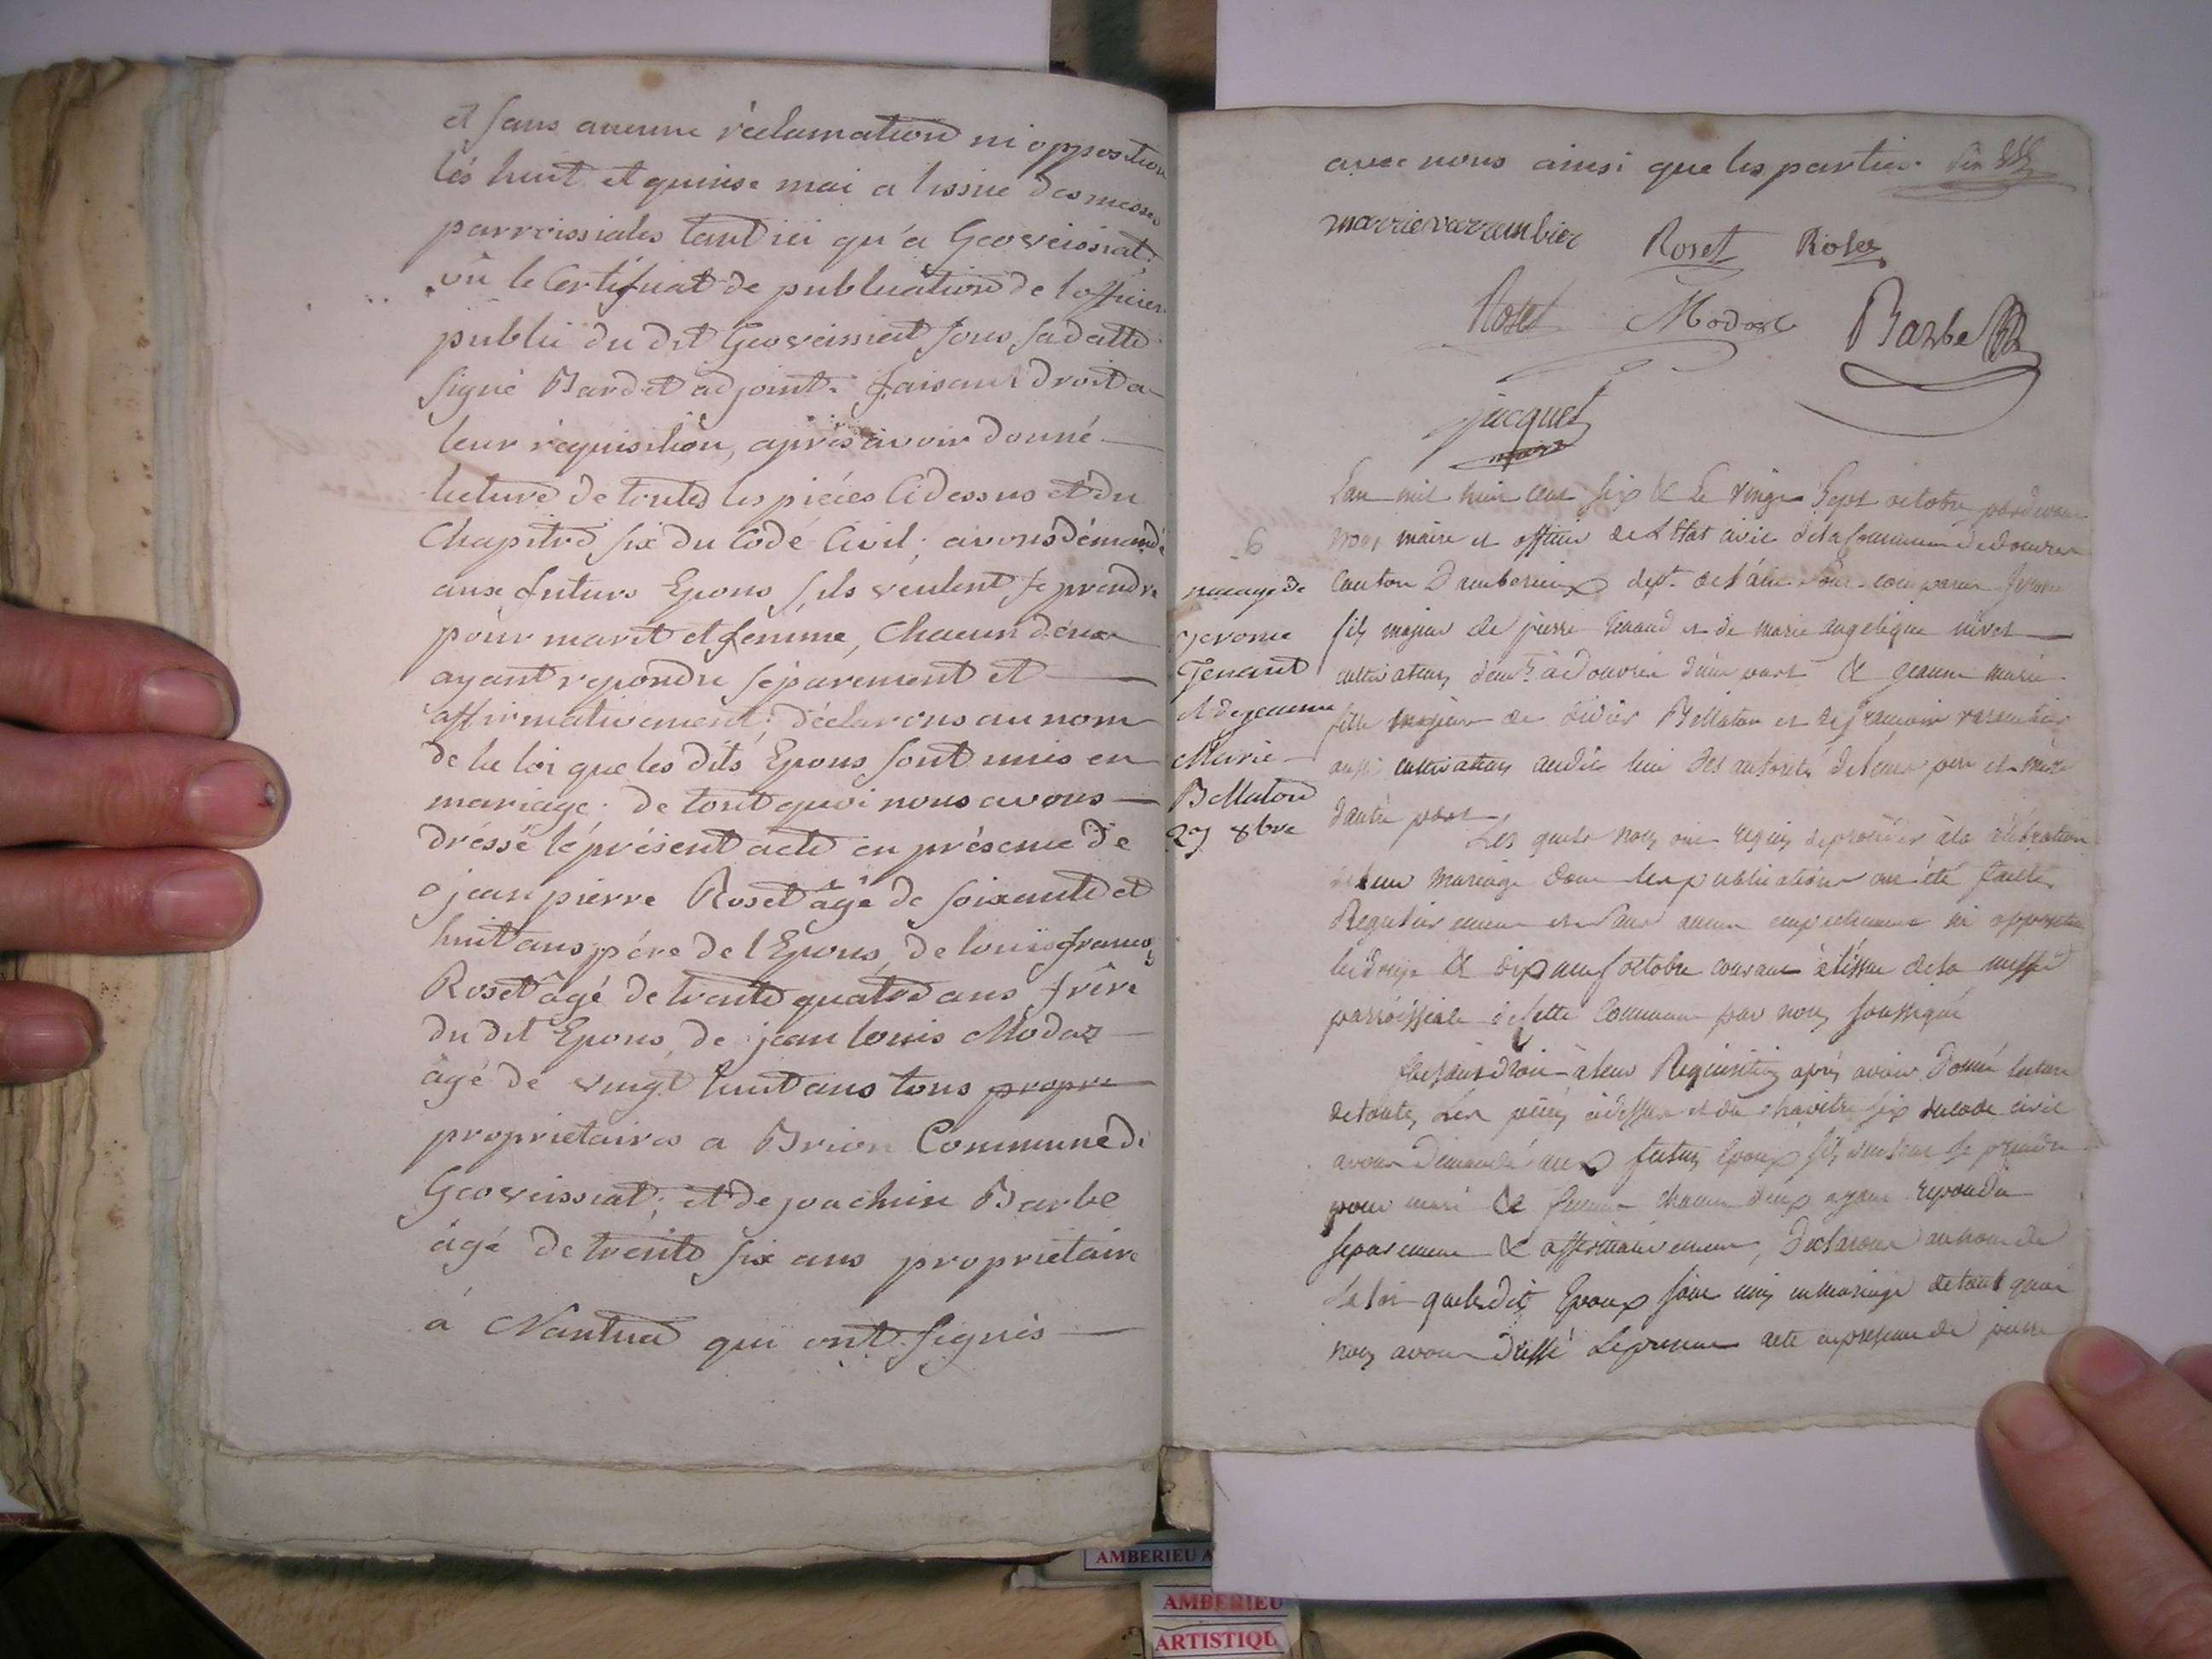 et sans aucune réclamation ni opposition
les huit et quinse mai a lissue des messes
parroissiales tant ici qu'a Geoveissiat;
vû le Certificat de publication de l'officier
public du dit Geoveissiat sous sa datte
signé Bardet adjoint. faisant droit a
leur réquisition, après avoir donné
lecture de toutes les piéces cidessus et du
Chapitre six du Code Civil; avons démandé
aux futurs Epous s'ils veulent se prendre
pour marit et femme, Chacun d'eux
ayant repondu séparement et
affirmativement; déclarons au nom
de la loi que les dits Epous sont unis en
mariage; de tout quoi nous avons
dréssé le présent acte en présence de
jean pierre Roset âgé de soixante et
huit ans père de l'Epous, de louis françois
Roset âgé de trente quatre ans frère
du dit Epous, de jean louis Modas
âgé de vingt huit ans tous propre
propriétaires a Brion Commune de
Geoveissiat; et de joachim Barbe
âgé de trente six ans propriétaire
à Nantua qui ont signés
avec nous ainsi que les parties.
marie varrambier Roset Roset
Roset Modas Barbe
jacquet
maire
6
mariage de
jerome
Tenand
et de jeanne
Marie
Bellaton
27 8bre
L'an mil huit cent six & le vingt sept octobre pardevant
nous maire et officier de l'Etat civil de la Commune de douvres
Canton d'amberieux dept. de l'ain comparu
fils majeur de pierre Tenand et de marie angelique nivet
cultivateurs demt. à douvres d'une part & jeanne marie
fille majeure de Bellaton et de
aussi cultivateurs audit lieu des autorité de leurs père et mère
d'autre part
Les quels nous ont requis de procéder à la célébration
de leur mariage dont les publications ont été faites
Regulierement et sans aucun empechement ni opposition
& dix neuf octobre courant à l'issue de la messe
parroissiale de cette Commune par nous soussigné
faisant droit à leur Requisition après avoir donné lecture
de toutes les pièces cidessus et du chapitre six du code civil
avons demandé aux futurs Epoux s'ils veulent se prendre
pour mari & femme chacun d'eux ayant repondu
separement & affirmativement, declarons au nom de
la loi que lesdits Epoux sont unis en mariage de tout quoi
nous avons dressé le present acte en presence de pierre
AMBERIEU A
AMBERIEU
ARTISTIQU